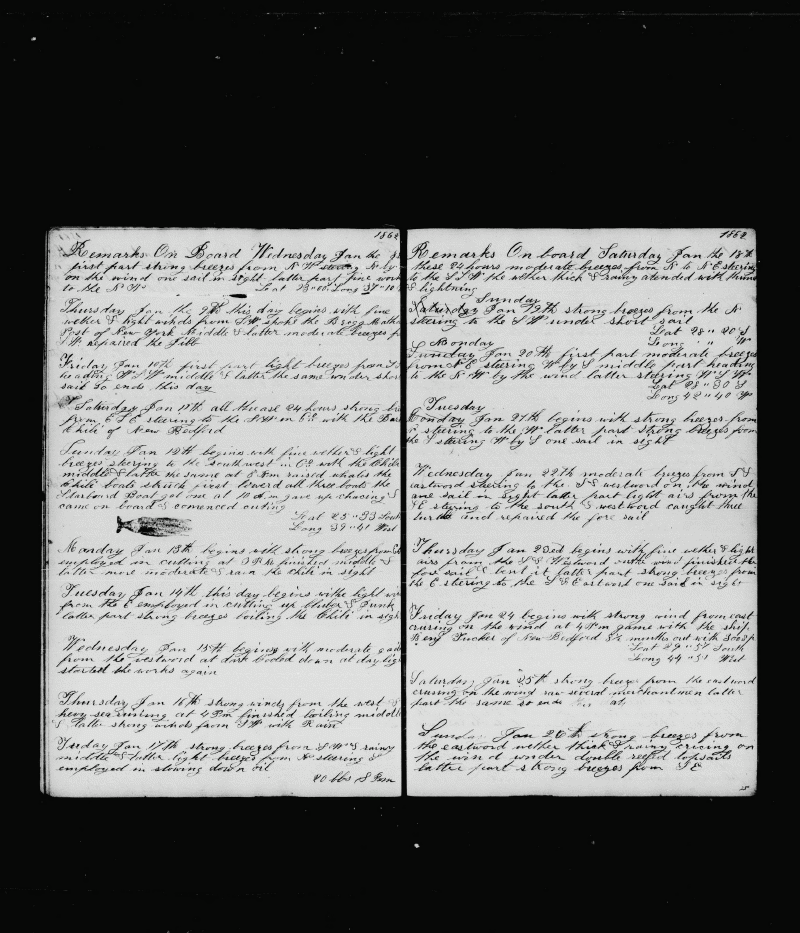 1862
Remarks On Board Wednesday Jan the
first part strong breezes from N W steering N by
on the wind one sail in sight latter part fine
to the N W Lat 23"00 Long 37"10
Thursday Jan the 9th this day begins with fine
wether & light winds from S W spoke the Brigg
Post of New York Middle & latter moderate breezes
S W repaired the Jibb
Friday Jan 10th first part light breezes from
heading W S W middle & latter the same under short
sail So ends this day
Saturday Jan 11th all thease 24 hours strong
from E S E steering to the S W in Co with the Bark
Chile of New Bedford
Sunday Jan 12th begins with fine wether & light
breezes steering to the Southwest in Co with the Chile
middle & latter the same at 8 Am raised whales the
Chile boats struck first lowerd all three boats the
Starboard Boat got one at 10 Am gave up chacing &
came on board & comenced cuting
Lat 25"33 South
Long 39"41 West
Monday Jan 13th begins with strong breezes from
employed in cutting at 3 P M finished middle &
latter more moderate & rain the Chili in sight
Tuesday Jan 14th this day begins withe light
from the E employed in cutting up bluber & Junk
latter part strong breezes boiling the Chili in sigh
Wednesday Jan 15th begins with moderate
from the westward at dark Cooled down at day lig
started the works again
Thursday Jan 16th strong winds from the west &
hevy sea running at 4 P m finished boiling middle
& latter strong winds from S W with Rain
Friday Jan 17th strong breezes from S W & rainy
middle & latter light breezes from steering
employed in stowing down oil
20 bbs Sperm
1862
Remarks On board Saturday Jan the 18th
these 24 hours moderate breezes from N to N E steering
to the S S W the wether thick & rainy atended with thund
& lightning
Sunday
Saturday Jan 19th strong breezes from the N
steering to the S W under short sail
Lat 28"20 S
Long " W
Monday
Sunday Jan 20th first part moderate breezes
from N E steering W by S middle part heading
to the N W by the wind latter steering W S W
Lat 28"30 S
Long 42"40 W
Tuesday
Monday Jan 21th begins with strong breezes from
steering to the W latter part strong breezes from
the S steering W by S one sail in sight
Wednesday Jan 22th moderate breezes from S S
eastward steering to the S S westward on the wind
one sail in sight latter part light airs from the
S E stering to the south & westword caught three
turtle and repaired the fore sail
Thursday Jan 23ed begins with fine wether & light
airs from the S & Westword on the wind finished the
fore sail & bent it latter part strong breezes from
the E stering to the S & Eastword one sail in sight
Friday Jan 24 begins with strong wind from east
crusing on the wind at 4 P m gamed with the ship
Benj Tucker of New Bedford 8½ months out with 300 Sp
Lat 29"51 South
Long 44"51 West
Saturday Jan 25th strong breeze from the eastword
crusing on the wind saw several merchantmen latter
part the same so ends
Sunday Jan 26th strong breezes from
the eastword wether thick & rainy crucing on
the wind under double reefed topsails
latter part strong breezes from S E
15